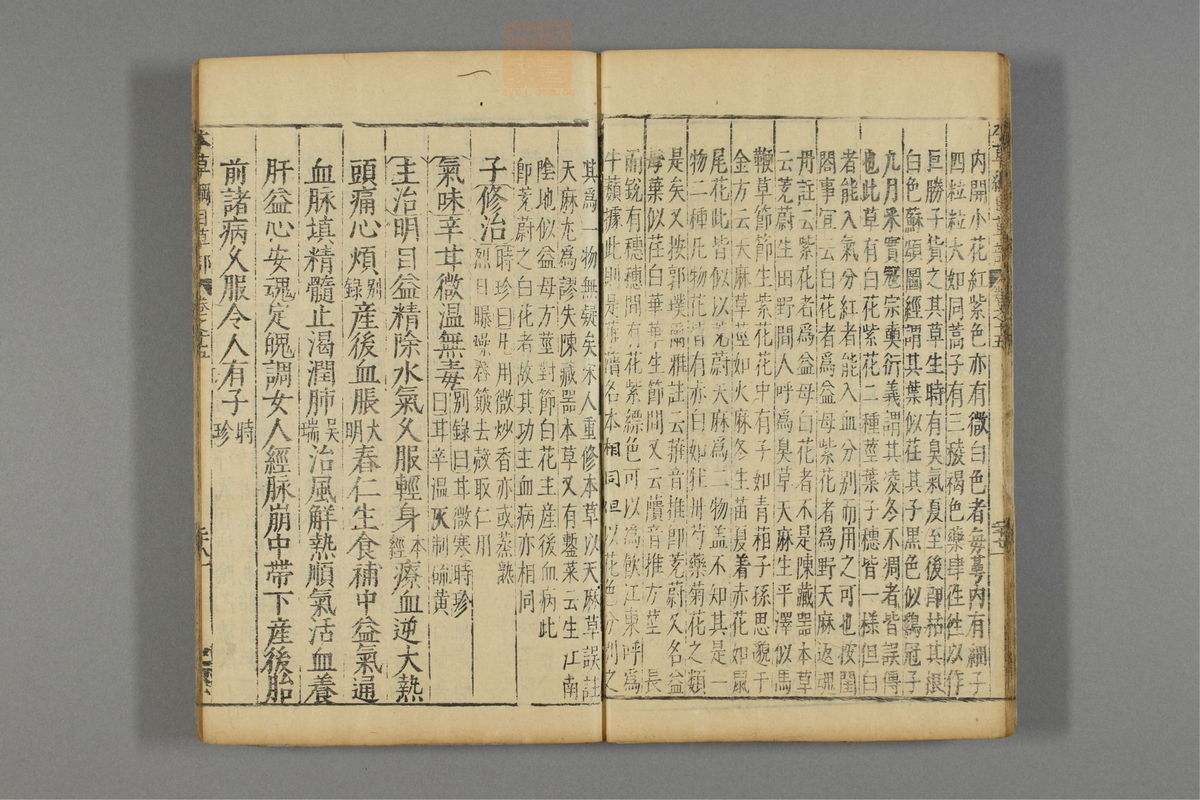 內開小花紅紫色亦有微白色者每蕚內有細子
四粒粒大如同蒿子有三稜褐色藥肆徃徃以作
巨勝子貨之其草生時有臭氣夏至後卽枯其根
白色蘇頌圖經謂其葉似荏其子黑色似鷄冠子
九月采實宼宗奭衍義謂其凌冬不凋者皆誤傳
也此草有白花紫花二種莖葉子穗皆一樣但白
者能入氣分紅者能入血分別而用之可也按閨
閤事宜云白花者爲益母紫花者爲野天麻返魂
丹註云紫花者爲益母白花者不是陳藏器本草
云茺蔚生田野間人呼爲臭草天麻生平澤似馬
鞭草節節生紫花花中有子如青葙子孫思邈千
金方云天麻草莖如火麻冬生苗夏着赤花如鼠
尾花此皆似以茺蔚天麻爲二物蓋不知其是一
物二種凡物花皆有赤白如牡丹芍藥菊花之類
是矣又按郭璞爾雅註云蓷音推卽茺蔚又名益
母葉似荏白華華生節間又云䕡音推方莖葉長
而銳有穗穗間有花紫縹色可以爲飲江東呼爲
牛蘈據此則是蓷䕡名本相同但以花色分別之
其爲一物無疑矣宋人重修本草以天麻草誤註
天麻尤爲謬失陳藏器本草又有鏨菜云生江南
陰地似益母方莖對節白花主產後血病此
卽茺蔚之白花者故其功主血病亦相同
子修治時珍曰凡用微炒香亦或蒸熟
烈日曝燥舂簸去殼取仁用
氣味辛甘微溫無毒別錄曰甘微寒時珍
曰甘辛溫灰制硫黃
主治明目益精除水氣久服輕身本經療血逆大熱
頭痛心煩別錄產後血脹大明舂仁生食補中益氣通
血脉塡精髓止渴潤肺吳瑞治風解熱順氣活血養
肝益心安魂定魄調女人經脉崩中帶下產後胎
前諸病久服令人有子時珍
本草綱目草部 卷之十五